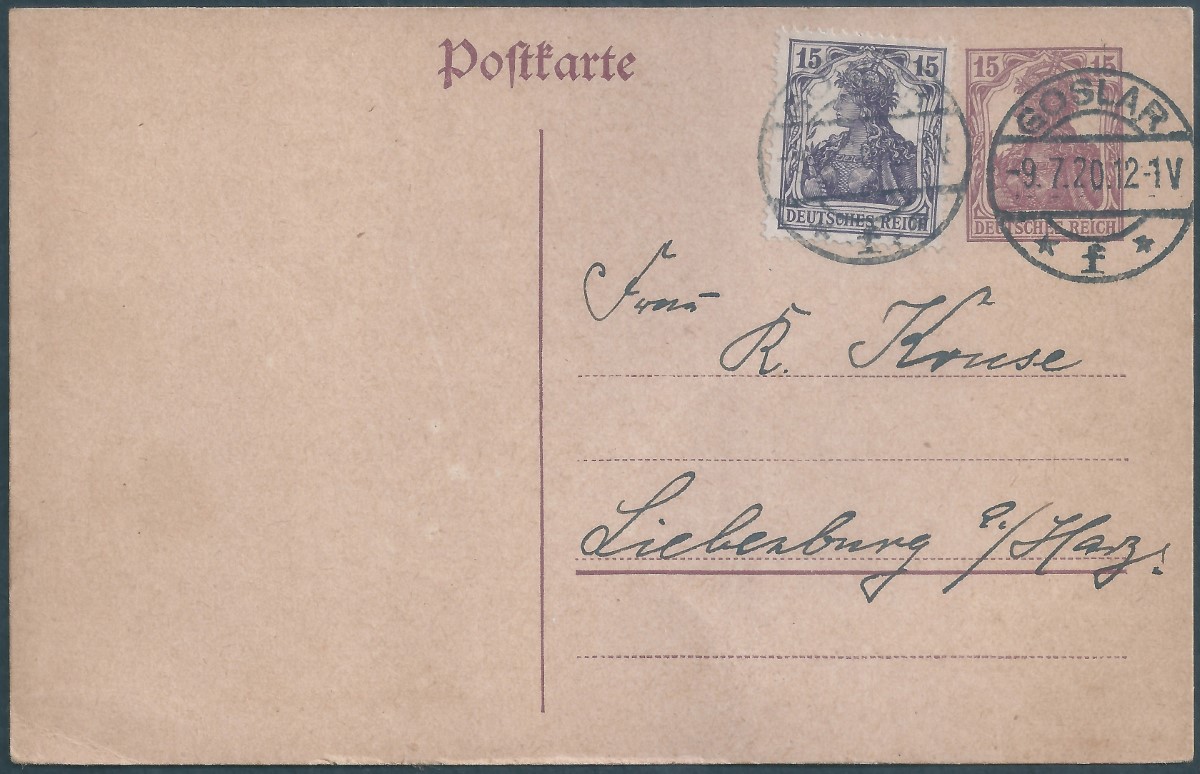 Postkarte
15 15
DEUTSCHES REICH
15 15
DEUTSCHES REICH
GOSLAR
-9.7.20.12-1V
* f *
* f *
Frau
R. Kruse
Liebenburg a/Harz.